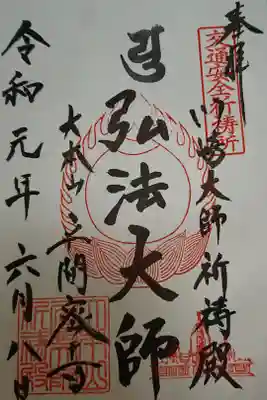 奉拝
交通安全祈祷所
川崎大師祈祷殿
弘法大師
大本山
令和元年六月八日